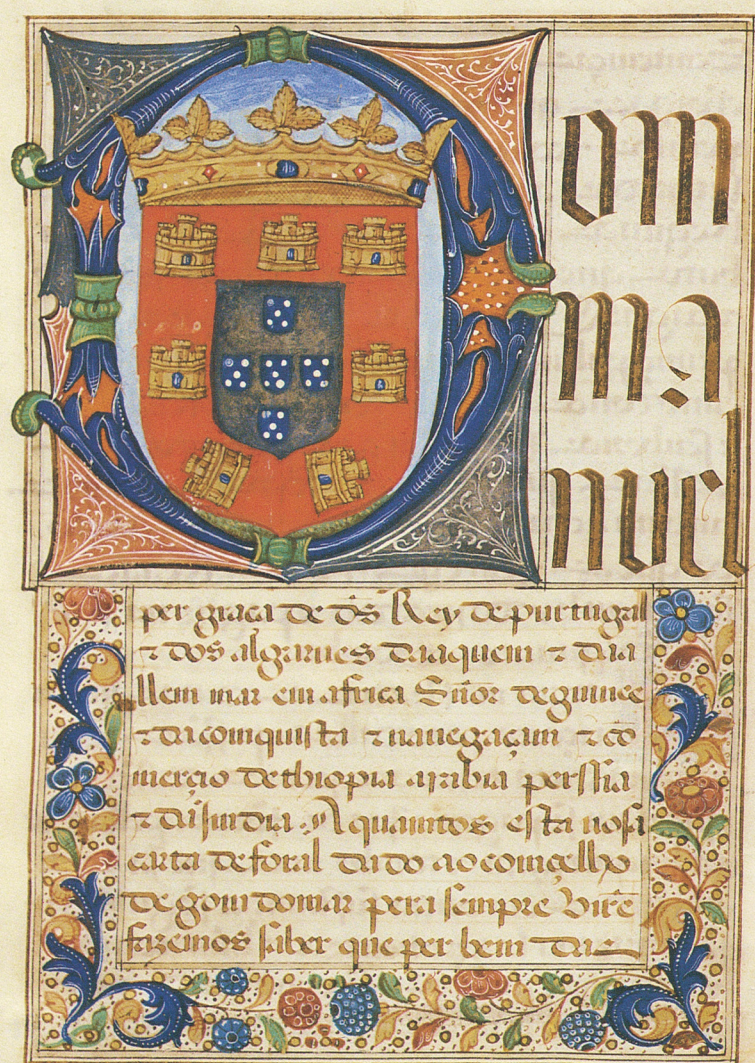 Dom
ma
nuel
per graca de ds̃ Rey de purtugal
⁊ dos algarues daaquem ⁊ daa
llem mar em africa Sñor de guinee
⁊ da comquista ⁊ nauegaçam ⁊ cõ
mercio dethiopia arabia perssia
⁊ da Jmdia A quamtos esta nosa
carta de foral dado ao comçelho
de gomdomar pera sempre virẽ
fazemos saber que per bem das